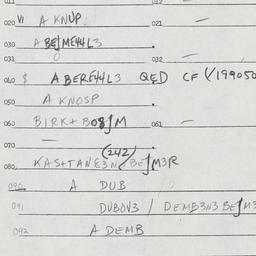 011 012
020 VI A KNUP 021 —
030 A BEJME44L3
031 0 032 —
040 $ A BERE44L3 QED CF (/199050
050 A KNOSP
060 BIRK+ BO8JM 061 —
070 —
(242)
080 KASHTANE3N/BEJM3R
090 A DUB
091 DUBOV3 / DEMB3N3 BEJM3
092 A DEMB